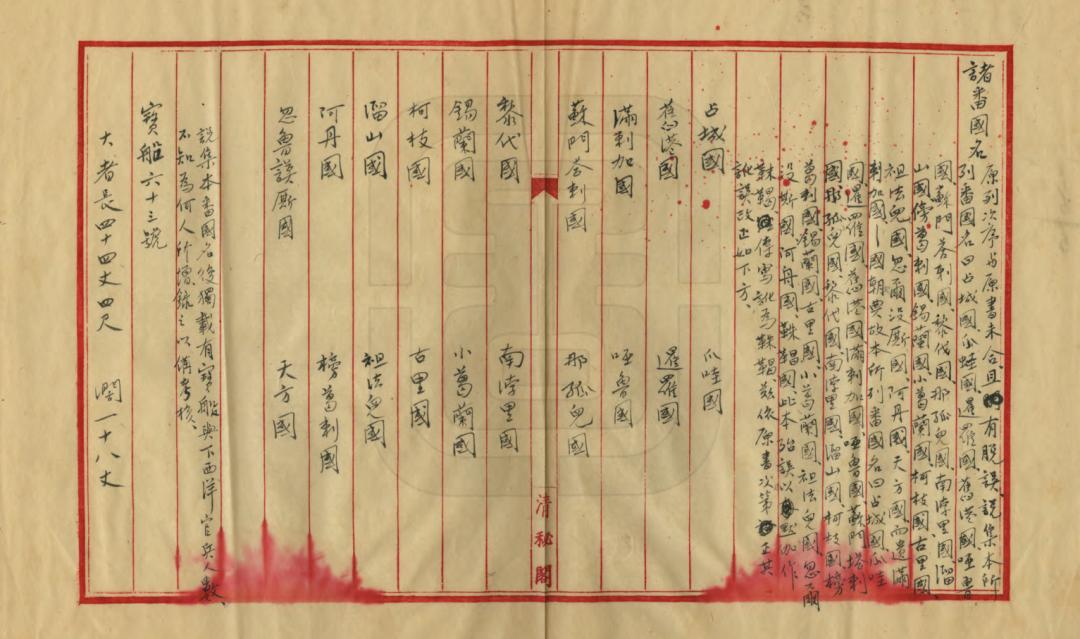 諸番國名
原列次序與原書未合且有脫誤說集本所
列番國名曰占城國爪哇國暹羅國舊港國啞魯
國蘇門荅剌國黎代國那孤兒國南浡里國溜
山國榜葛剌國錫蘭國小葛蘭國柯枝國古里國
祖法兒國忽爾没厮國阿丹國天方國而遺滿
剌加國一國朝典故本所列番國名曰占城國爪哇
國暹羅國舊港國滿剌加國啞魯國蘇門塔剌
國那孤兒國黎代國南浡里國溜山國柯枝國榜
葛剌國錫蘭國古里國小葛蘭國祖法兒國忽爾
没斯國阿丹國靺鞨國此本殆誤以默伽作
靺鞨傳寫訛為靺鞨茲依原書次第正其
訛誤改正如下方
占城國 爪哇國
舊港國 暹羅國
滿剌加國 啞魯國
蘇門荅剌國 那孤兒國
黎代國 南浡里國
錫蘭國 小葛蘭國
柯枝國 古里國
溜山國 祖法兒國
阿丹國 榜葛剌國
忽魯謨厮國 天方國
說集本番國名後獨載有寶船與下西洋官兵人數
不知為何人所增錄之以備考核
寶船六十三號
大者長四十四丈四尺 闊一十八丈
清秘閣